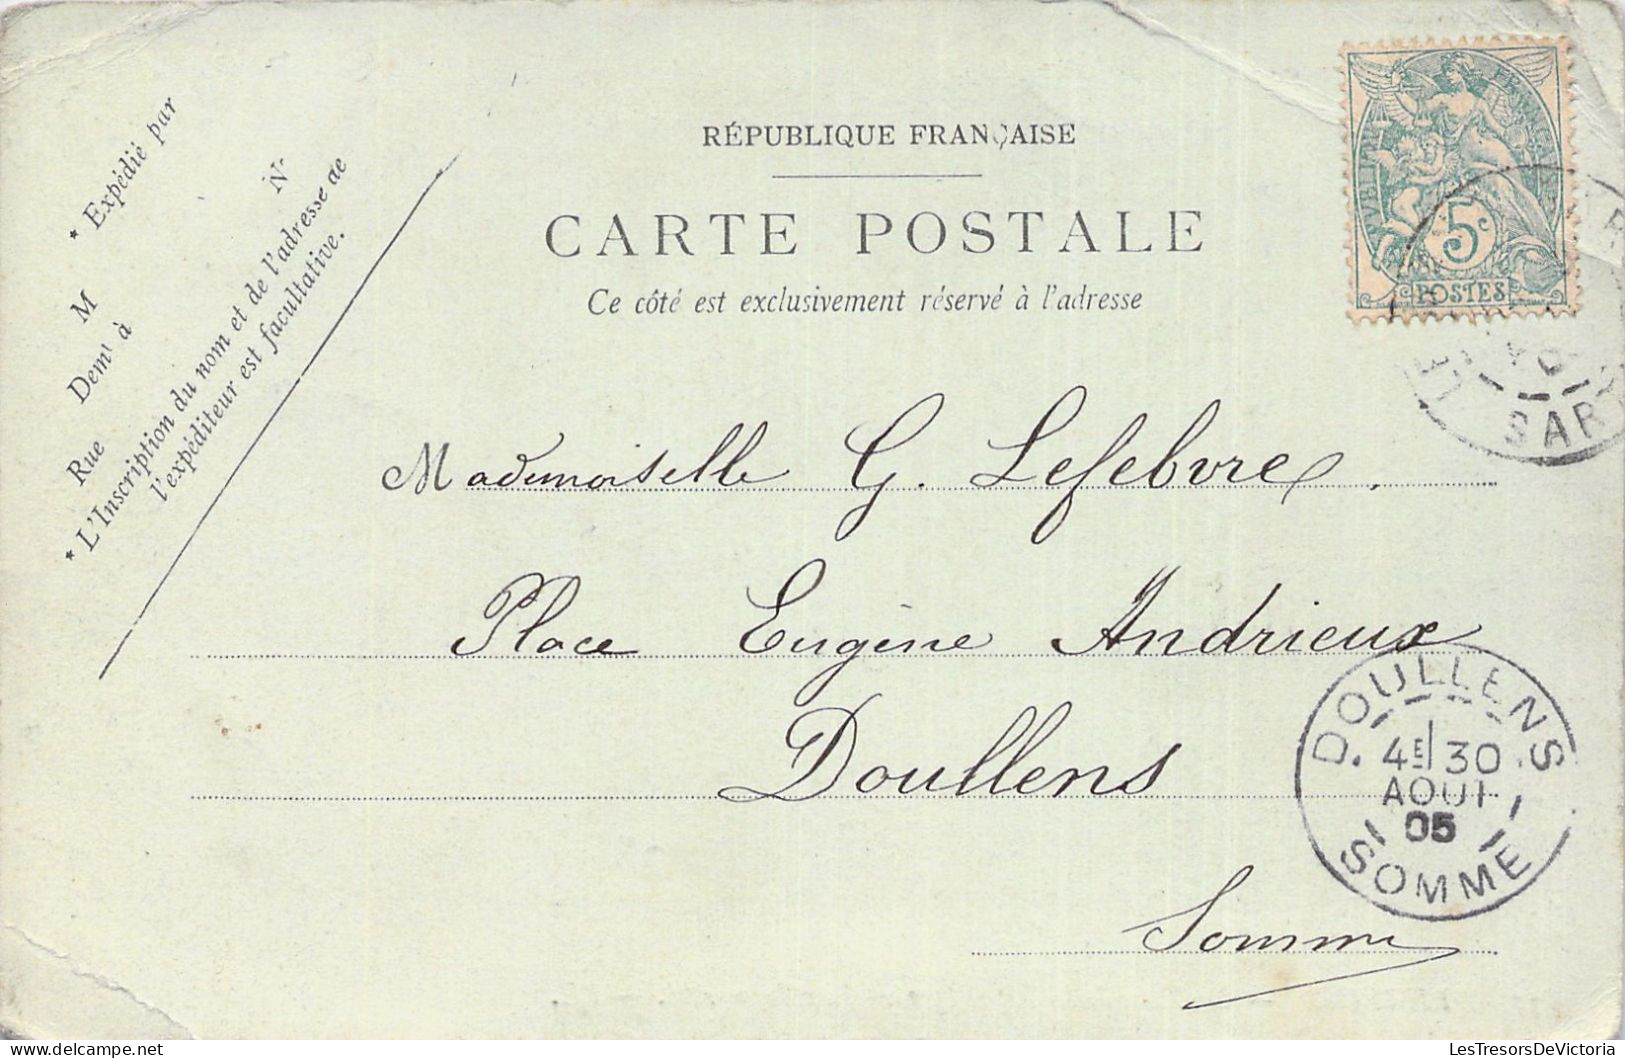 RÉPUBLIQUE FRANÇAISE
CARTE POSTALE
Ce côté est exclusivement réservé à l'adresse
* Expédié par
M
Demt à
Rue
No
* L'Inscription du nom et de l'adresse de
l'expéditeur est facultative.
5c
POSTES
SAR
Mademoiselle G. Lefebvre.
Place Eugène Andrieux
Doullens
Somme
DOULLENS
4E 30
AOUT
05
SOMME
LesTresorsDeVictoria